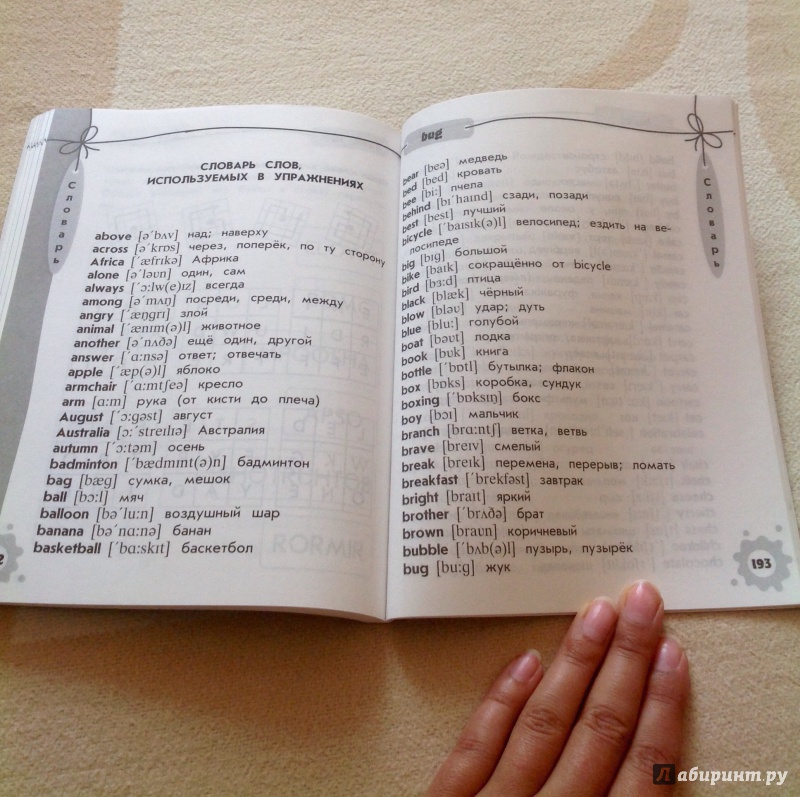 Словарь
СЛОВАРЬ СЛОВ,
ИСПОЛЬЗУЕМЫХ В УПРАЖНЕНИЯХ
above [ə´bʌv] над; наверху
across [ə´krɒs] через, поперёк, по ту сторону
Africa [´æfrɪkə] Африка
alone [ə´ləʊn] один, сам
always [´ɔ:lw(e)ɪz] всегда
among [ə´mʌŋ] посреди, среди, между
angry [´æŋgrɪ] злой
animal [´ænɪm(ə)l] животное
another [ə´nʌðə] ещё один, другой
answer [´ɑ:nsə] ответ; отвечать
apple [´æp(ə)l] яблоко
armchair [´ɑ:mtʃeə] кресло
arm [ɑ:m] рука (от кисти до плеча)
August [´ɔ:gəst] август
Australia [ɔ:´streɪlɪə] Австралия
autumn [´ɔ:təm] осень
badminton [´bædmɪnt(ə)n] бадминтон
bag [bæg] сумка, мешок
ball [bɔ:l] мяч
balloon [bə´lu:n] воздушный шар
banana [bə´nɑ:nə] банан
basketball [´bɑ:skɪt] баскетбол
2
bug
bear [beə] медведь
bed [bed] кровать
bee [bi:] пчела
behind [bɪ´haɪnd] сзади, позади
best [best] лучший
bicycle [´baɪsɪk(ə)l] велосипед; ездить на ве-
лосипеде
big [bɪg] большой
bike [baɪk] сокращённо от bicycle
bird [bɜ:d] птица
black [blæk] чёрный
blow [bləʊ] удар; дуть
blue [blu:] голубой
boat [bəʊt] лодка
book [bʊk] книга
bottle [´bɒtl] бутылка; флакон
box [bɒks] коробка, сундук
boxing [´bɒksɪŋ] бокс
boy [bɔɪ] мальчик
branch [brɑ:ntʃ] ветка, ветвь
brave [breɪv] смелый
break [breɪk] перемена, перерыв; ломать
breakfast [´brekfəst] завтрак
bright [braɪt] яркий
brother [´brʌðə] брат
brown [braʊn] коричневый
bubble [´bʌb(ə)l] пузырь, пузырёк
bug [bu:g] жук
Словарь
193
Лабиринт.ру